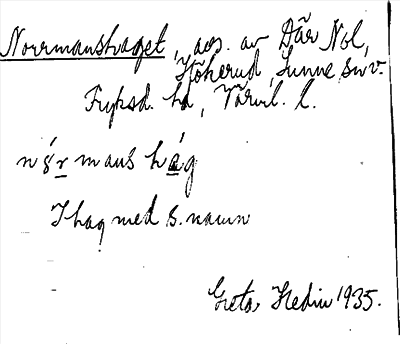 Norrmanshaget, ags. av Där Nol,
Höherud, Sunne sn v.
Fryksd. hd, Värml. l.
nó̤r mans hág
I hag med s. namn
Greta Hedin 1935.